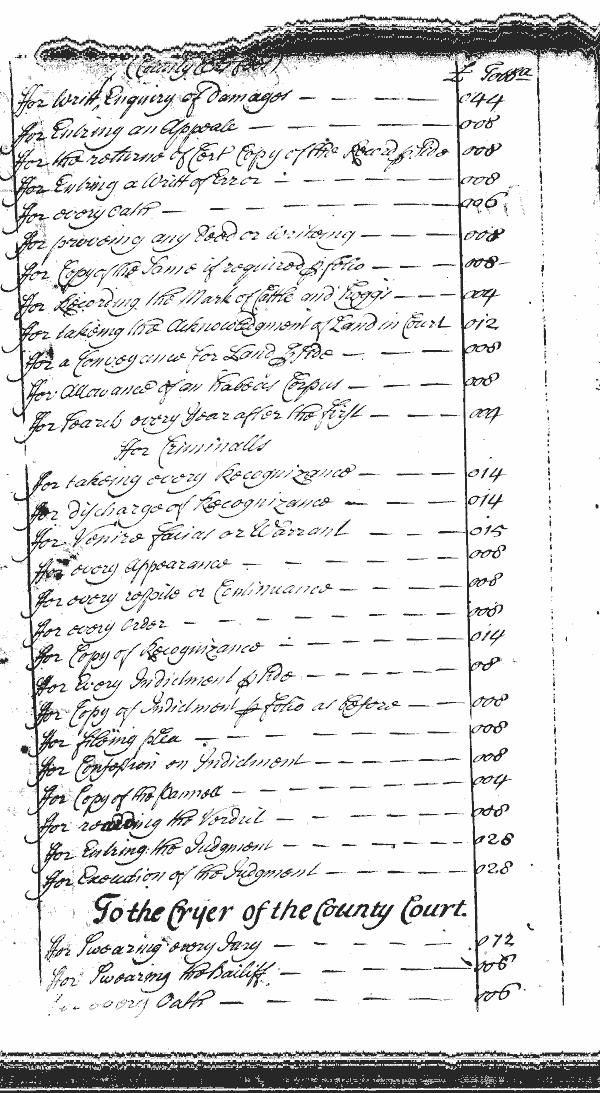 (County Cort fees)
£ Tobba
ffor Writt, Enquiry of Damages 044
ffor Entring an Appeale 008
ffor the returne of Cert Copy of the Record p side 008
ffor Entring a Writt of Error 008
ffor every oath 006
ffor proveing any Deed or writeing 008
ffor Copy of the Same if required p folio 008
ffor Recording the Mark of Cattle and hoggs 004
ffor takeing the Acknowledgment of Land in Court 012
ffor a Conveyance for Land p side 008
ffor Allowance of an habeas Corpus 008
ffor Search every Year after the first 004
ffor Criminalls
ffor takeing every Recognizance 014
ffor discharge of Recognizance 014
ffor Venire facias or Warrant 015
ffor every Appearance 008
ffor every respite or Continuance 008
ffor every Order 008
ffor Copy of Recognizance 014
ffor Every Indictment p side 08
ffor Copy of Indictment p folio as before 008
ffor fileing plea 008
ffor Confession on Indictment 008
ffor Copy of the Pannell 004
ffor reading the Verdict 008
ffor Entring the Judgment 028
ffor Execution of the Judgment 028
To the Cryer of the County Court.
ffor Swearing every Jury 072
ffor Swearing the Bailiff 006
ffor every Oath 006